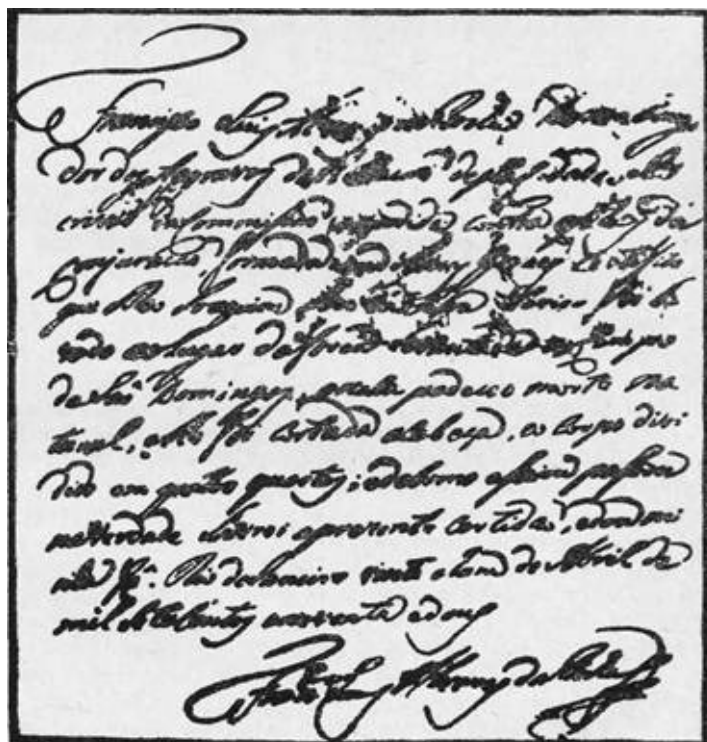 Francisco Luiz Alvares da Rocha Dezembarga
dor dos Aggravos da Relaçam desta Cidade, e Es
crivam da Commissam expedida contra os Reos da
conjuraçam formada em Minas Geraes Certifico
que o Reo Joaquim Jozé da Silva Xavier foi le
vado ao lugar da forca levantada no Campo
de Sam Domingos, e nella padeceo morte na
tural, e lhe foi cortada a cabeça, e o corpo divi
dido em quatro quartos; e de como assim passou
na verdade lavrei a prezente certidam, e dou mi
nha fé. Rio de Janeiro vinte e hum de Abril de
mil setecentos noventa e dous
Franco Luiz Alvares da Rocha